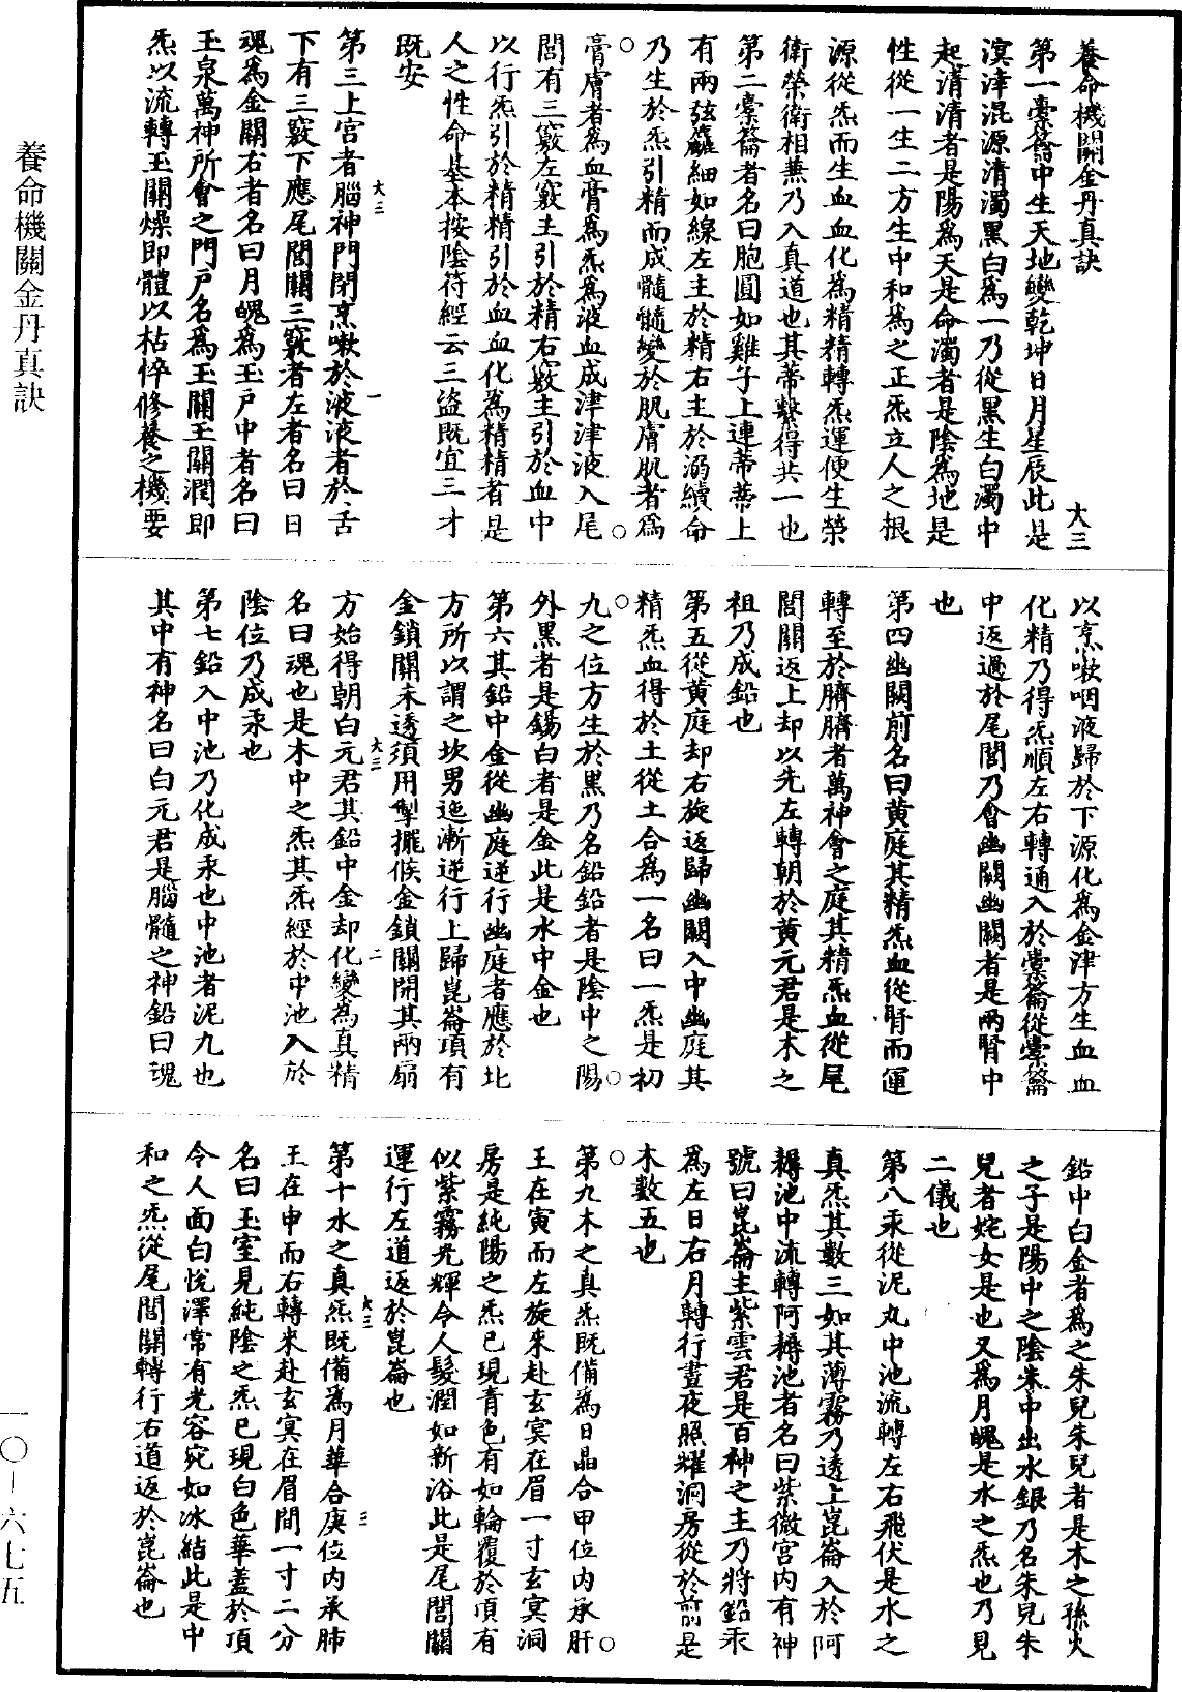 養命機關金丹真訣
大三
第一橐籥中生天地變乾坤日月星辰此是
溟涬混源清濁黑白為一乃從黑生白濁中
起清清者是陽為天是命濁者是陰為地是
性從一生二方生中和為之正炁立人之根
源從炁而生血血化為精精轉炁運便生榮
衛榮衛相兼乃入真道也其蒂繫得共一也
第二橐籥者名曰胞圓如雞子上連蒂蒂上
有兩弦麤細如線左主於精右主於溺續命
乃生於炁引精而成髓髓變於肌膚肌者為
膏膚者為血膏為炁為液血成津津液入尾
閭有三竅左竅主引於精右竅主引於血中
以行炁引於精精引於血血化為精精者是
人之性命基本按陰符經云三盜既宜三才
既安
第三上宮者腦神門閉烹嗽於液液者於舌
下有三竅下應尾閭關三竅者左者名曰日
魂為金關右者名曰月魄為玉戶中者名曰
玉泉萬神所會之門戶名為玉關玉關潤即
炁以流轉玉關燥即體以枯悴修養之機要
大三
一
以烹嗽咽液歸於下源化為金津方生血血
化精乃得炁順左右轉通入於橐籥從橐籥
中返過於尾閭乃會幽關幽關者是兩腎中
也
第四幽關前名曰黃庭其精炁血從腎而運
轉至於臍臍者萬神會之庭其精炁血從尾
閭關返上却以先左轉朝於黃元君是木之
祖乃成鉛也
第五從黃庭却右旋返歸幽關入中幽庭其
精炁血得於土從土合為一名曰一炁是初
九之位方生於黑乃名鉛鉛者是陰中之陽
外黑者是錫白者是金此是水中金也
第六其鉛中金從幽庭逆行幽庭者應於北
方所以謂之坎男迤漸逆行上歸崑崙項有
金鎖關未透須用掣擺候金鎖關開其兩扇
方始得朝白元君其鉛中金却化變為真精
名曰魂也是木中之炁其炁經於中池入於
陰位乃成汞也
第七鉛入中池乃化成汞也中池者泥九也
其中有神名曰白元君是腦髓之神鉛曰魂
大三
二
鉛中白金者為之朱兒朱兒者是木之孫火
之子是陽中之陰朱中出水銀乃名朱兒朱
兒者姹女是也又為月魄是水之炁也乃見
二儀也
第八汞從泥丸中池流轉左右飛伏是水之
真炁其數三如其薄霧乃透上崑崙入於阿
耨池中流轉阿耨池者名曰紫微宮內有神
號曰崑崙主紫雲君是百神之主乃將鉛汞
為左日右月轉行晝夜照耀洞房從於前是
木數五也
第九木之真炁既備為日晶合甲位內承肝
王在寅而左旋來赴玄冥在眉一寸玄冥洞
房是純陽之炁已現青色有如輪覆於項有
似紫霧光輝令人髮潤如新浴此是尾閭關
運行左道返於崑崙也
第十水之真炁既備為月華合庚位內承肺
王在申而右轉來赴玄冥在眉間一寸二分
名曰玉室見純陰之炁已現白色華蓋於頂
令人面白悅澤常有光容宛如冰結此是中
和之炁從尾閭關轉行右道返於崑崙也
大三
三
養命機關金丹真訣
一〇－六七五